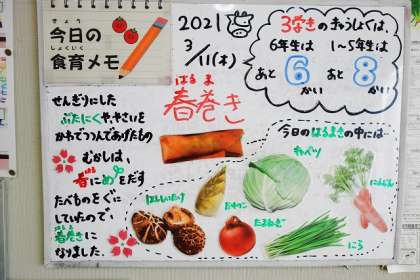 きょう
今日の
しょくいく
食育メモ
2021
3/11(木)
3学きのきゅうしょくは、
6年生は
あと
6
かい
1～5年生は
あと
8
かい
はるま
春巻き
せんぎりにした
ぶたにくややさいを
かわでつつんであげたもの
むかしは、
春にめがでる
たべものをぐに
していたので、
春巻きに
なりました。
今日のはるまきの中には…
キャベツ
にんじん
ほししいたけ
たけのこ
たまねぎ
にら